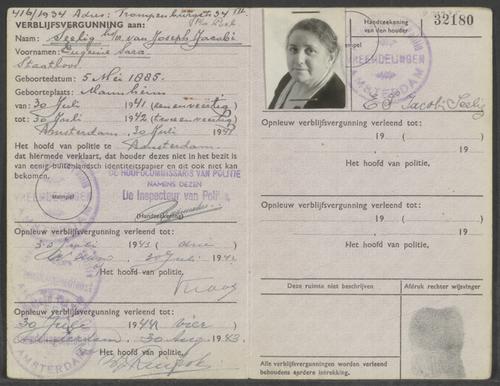 416/1934 Adres: Trompenburgstr 34 III
VERBLIJFSVERGUNNING aan:
Naam: Seelig h/v. van Joseph Jacobi
Voornamen: Eugenie Sara
Staatloos
Geboortedatum: 5 Mei 1885.
Geboorteplaats: Mannheim
van: 30 Juli 1941 (een en veertig)
tot: 30 Juli 1942 (twee en veertig)
Amsterdam, 30 Juli 1941
Het hoofd van politie te Amsterdam
dat hiermede verklaart, dat houder dezes niet in het bezit is
van eenig buitenlandsch identiteitspapier en dit ook niet kan
bekomen.
DE HOOFDCOMMISSARIS VAN POLITIE
NAMENS DEZEN
De Inspecteur van Politie,
Stempel
(Handteekening)
Opnieuw verblijfsvergunning verleend tot:
30 Juli 1943 (drie)
A'dam, 30 Juli 1942
Het hoofd van politie,
Opnieuw verblijfsvergunning verleend tot:
30 Juli 1944 (vier)
Amsterdam, 30 Aug. 1943.
Het hoofd van politie,
AMSTERDAM
Handteekening
van den houder
32180
VREEMDELINGEN
AMSTERDAM
E S Jacobi-Seelig
Opnieuw verblijfsvergunning verleend tot:
19 ( )
19
Het hoofd van politie,
Opnieuw verblijfsvergunning verleend tot:
19 ( )
19
Het hoofd van politie,
Deze ruimte niet beschrijven
Afdruk rechter wijsvinger
Alle verblijfsvergunningen worden verleend
behoudens eerdere intrekking.